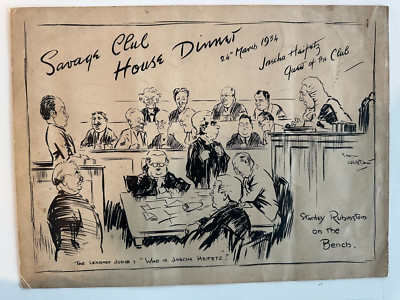 Savage Club
House Dinner
24th March 1934
Jascha Heifetz
Guest of the Club
Stanley Rubinstein
on the
Bench.
The Learned Judge: "Who is Jascha Heifetz?"